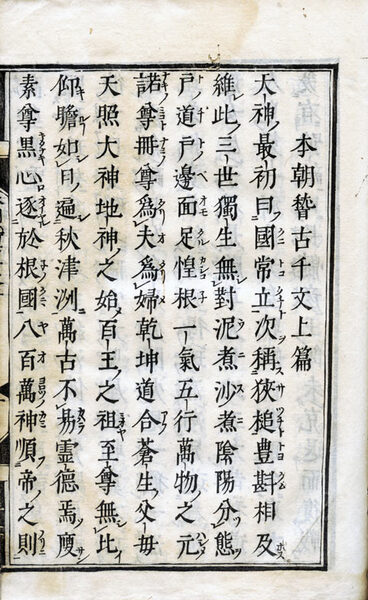 本朝稽古千文上篇
大神最初曰國常立次稱狹槌豊斟相及
維此三世獨生無對泥煮沙煮陰陽分態
戸道戸邊面足惶根一氣五行萬物之元
諾尊冊尊爲夫爲婦乾坤道合蒼生父母
天照大神地神之始百王之祖至尊無比
仰瞻如日遍秋津洲萬古不易靈德焉廋
素尊黒心逐於根國八百萬神順帝之則